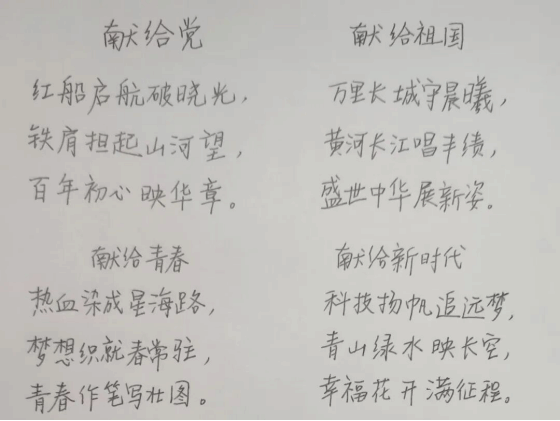 献给党
红船启航破晓光，
铁肩担起山河望，
百年初心映华章。
献给祖国
万里长城守晨曦，
黄河长江唱丰绩，
盛世中华展新姿。
献给青春
热血染成星海路，
梦想织就春常驻，
青春作笔写壮图。
献给新时代
科技扬帆追远梦，
青山绿水映长空，
幸福花开满征程。